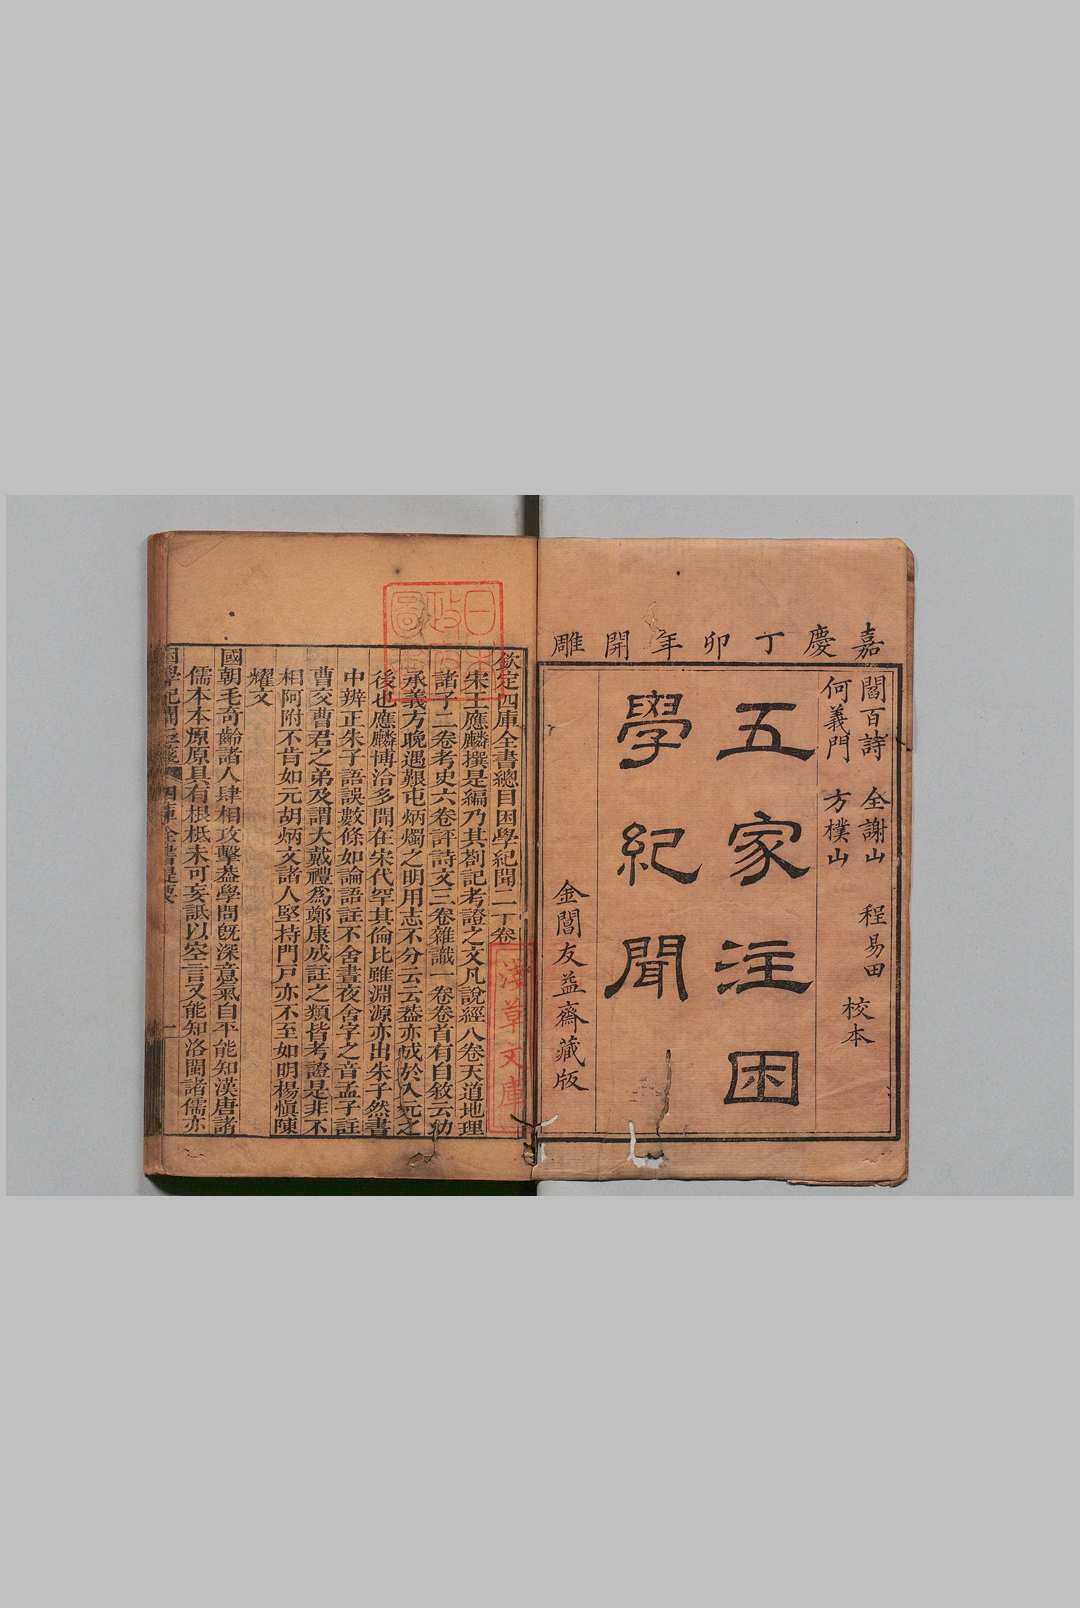 嘉慶丁卯年開雕
閻百詩 全謝山 程易田 校本
何義門 方樸山
五家注困
學紀聞
金閶友益齋藏版
欽定四庫全書總目困學紀聞二十卷
宋王應麟撰是編乃其劄記考證之文凡說經八卷天道地理
諸子二卷考史六卷評詩文三卷雜識一卷卷首有自敘云幼
承義方晚遇艱屯炳燭之明用志不分云云葢亦成於入元之
後也應麟博洽多聞在宋代罕其倫比雖淵源亦出朱子然書
中辨正朱子語誤數條如論語註不舍晝夜舍字之音孟子註
曹交曹君之弟及謂大戴禮爲鄭康成註之類皆考證是非不
相阿附不肯如元胡炳文諸人堅持門戸亦不至如明楊愼陳
耀文
國朝毛奇齡諸人肆相攻擊葢學問旣深意氣自平能知漢唐諸
儒本本原原具有根柢未可妄詆以空言又能知洛閩諸儒亦
困學紀聞 四庫全書提要 一
淺草文庫